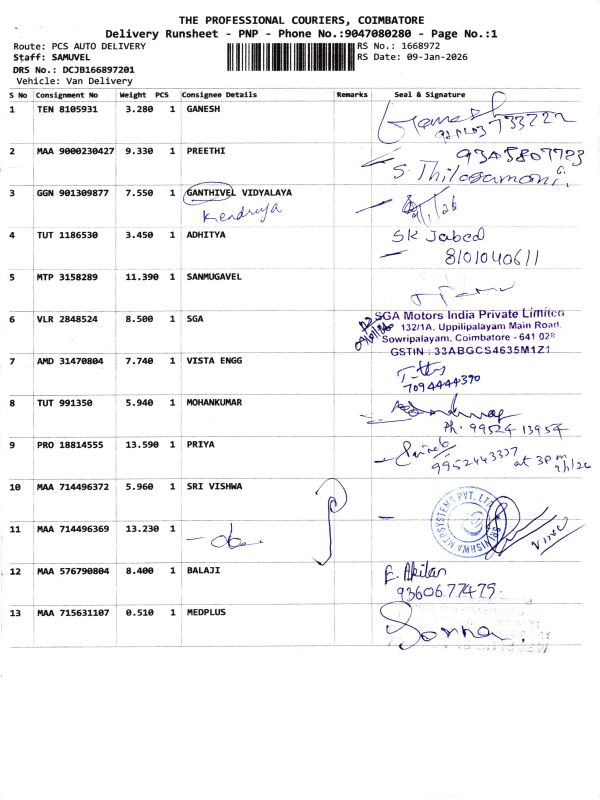 THE PROFESSIONAL COURIERS, COIMBATORE
Delivery Runsheet - PNP - Phone No.:9047080280 - Page No.:1
Route: PCS AUTO DELIVERY
RS No.: 1668972
Staff: SAMUVEL
RS Date: 09-Jan-2026
DRS No.: DCJB166897201
Vehicle: Van Delivery
S No Consignment No Weight PCS Consignee Details Remarks Seal & Signature
1 TEN 8105931 3.280 1 GANESH
2 MAA 9000230427 9.330 1 PREETHI
9345807723
S. Thilagamani.
3 GGN 901309877 7.550 1 GANTHIVEL VIDYALAYA
Kendruya
9/1/26
4 TUT 1186530 3.450 1 ADHITYA
SK Jabed
8101040611
5 MTP 3158289 11.390 1 SANMUGAVEL
6 VLR 2848524 8.500 1 SGA
SGA Motors India Private Limited
132/1A, Uppilipalayam Main Road,
Sowripalayam, Coimbatore - 641 028
GSTIN : 33ABGCS4635M1Z1
7 AMD 31470804 7.740 1 VISTA ENGG
7094444390
8 TUT 991350 5.940 1 MOHANKUMAR
Ph. 99524 13954
9 PRO 18814555 13.590 1 PRIYA
9952443337 at 3 pm
9/1/26
10 MAA 714496372 5.960 1 SRI VISHWA
11 MAA 714496369 13.230 1
- do -
12 MAA 576790804 8.400 1 BALAJI
E. Akilan
9360677475.
13 MAA 715631107 0.510 1 MEDPLUS